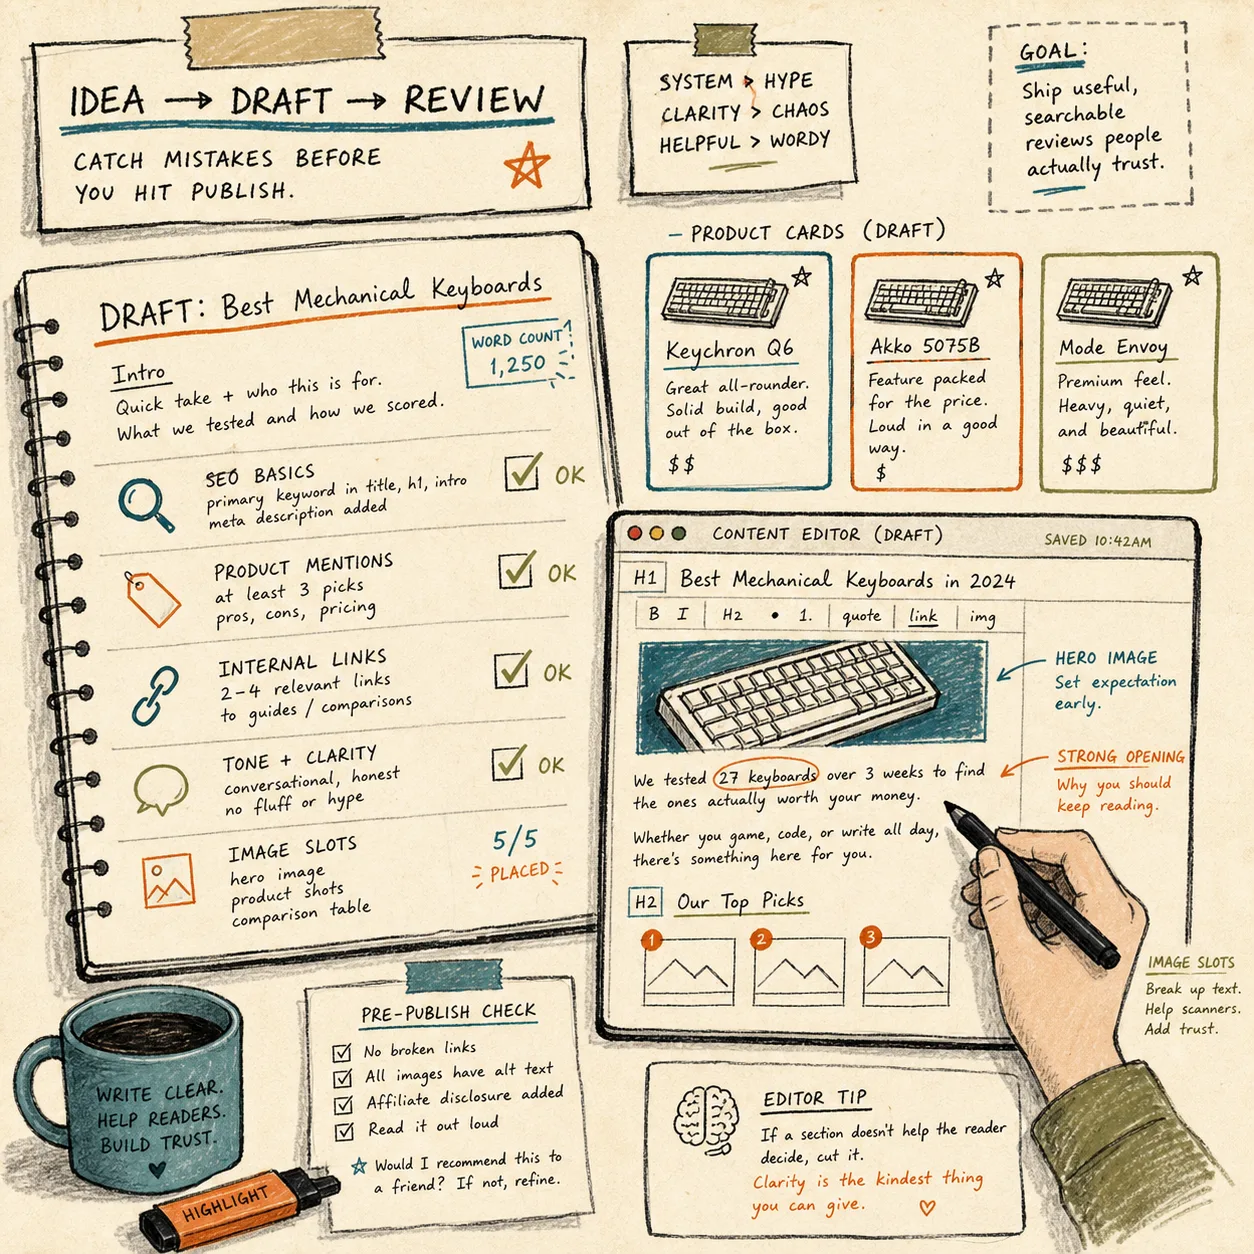 IDEA → DRAFT → REVIEW
CATCH MISTAKES BEFORE
YOU HIT PUBLISH.
SYSTEM > HYPE
CLARITY > CHAOS
HELPFUL > WORDY
GOAL:
Ship useful,
searchable
reviews people
actually trust.
DRAFT: Best Mechanical Keyboards
WORD COUNT
1,250
Intro
Quick take + who this is for.
What we tested and how we scored.
SEO BASICS
primary keyword in title, h1, intro
meta description added
OK
PRODUCT MENTIONS
at least 3 picks
pros, cons, pricing
OK
INTERNAL LINKS
2-4 relevant links
to guides / comparisons
OK
TONE + CLARITY
conversational, honest
no fluff or hype
OK
IMAGE SLOTS
hero image
product shots
comparison table
5/5
PLACED
— PRODUCT CARDS (DRAFT)
Keychron Q6
Great all-rounder.
Solid build, good
out of the box.
$$
Akko 5075B
Feature packed
for the price.
Loud in a good
way.
$
Mode Envoy
Premium feel.
Heavy, quiet,
and beautiful.
$$$
CONTENT EDITOR (DRAFT)
SAVED 10:42AM
H1 Best Mechanical Keyboards in 2024
B I H2 • 1. quote link img
HERO IMAGE
Set expectation
early.
We tested 27 keyboards over 3 weeks to find
the ones actually worth your money.
STRONG OPENING
Why you should
keep reading.
Whether you game, code, or write all day,
there's something here for you.
H2 Our Top Picks
1 2 3
IMAGE SLOTS
Break up text.
Help scanners.
Add trust.
WRITE CLEAR.
HELP READERS.
BUILD TRUST.
HIGHLIGHT
PRE-PUBLISH CHECK
No broken links
All images have alt text
Affiliate disclosure added
Read it out loud
Would I recommend this to
a friend? If not, refine.
EDITOR TIP
If a section doesn't help the reader
decide, cut it.
Clarity is the kindest thing
you can give.